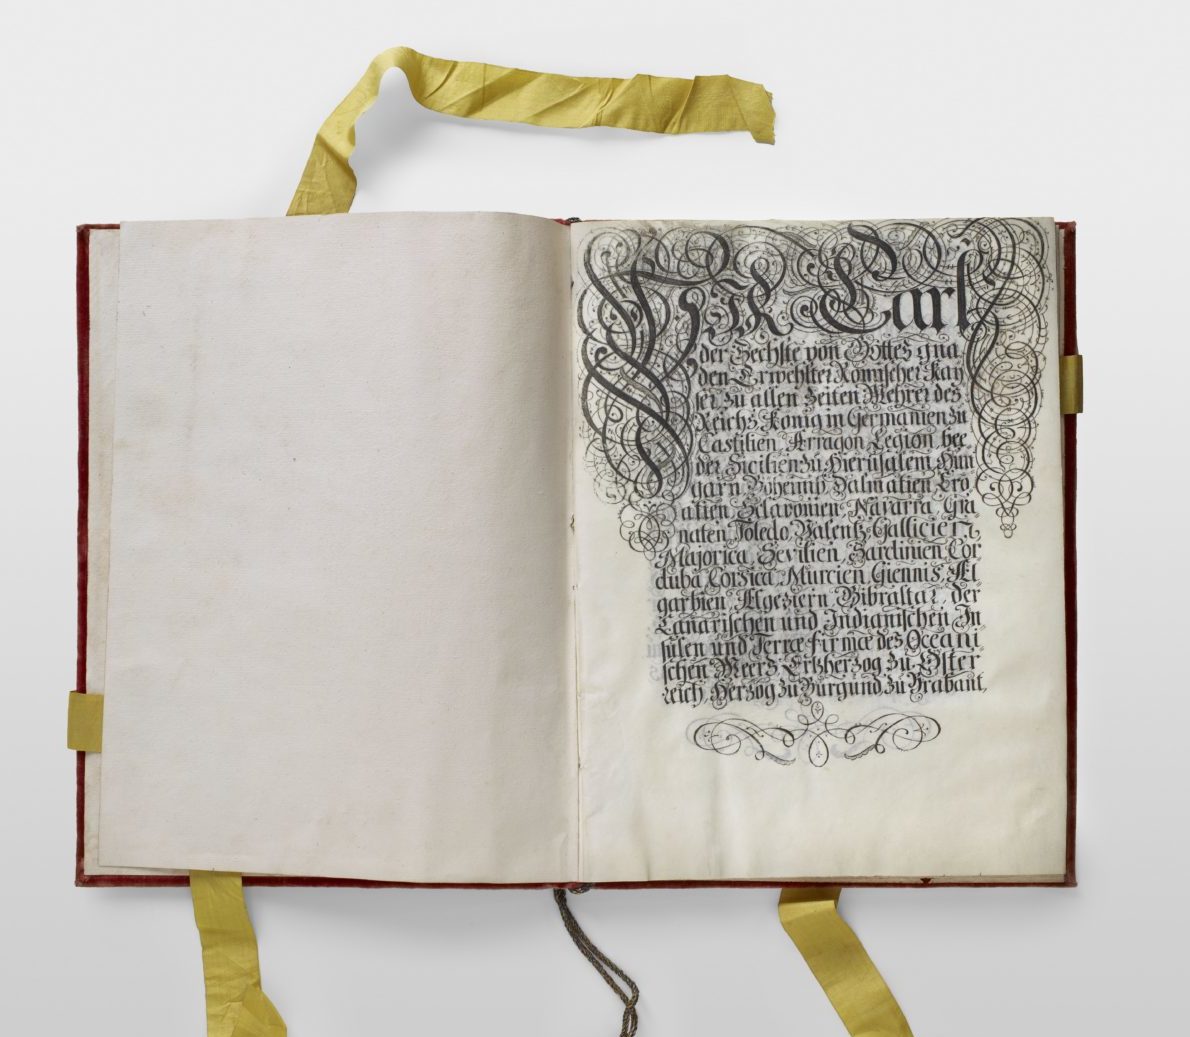 WIR Carl
der Sechste von Gottes gna
den Erwehlter Römischer Kay
ser zu allen Zeiten Mehrer des
Reichs, König in Germanien zu
Castilien, Arragon, Legion, bee-
der Sicilien zu Hierusalem, Hun
garn Böheimb, Dalmatien Cro
atien Sclavonien, Navarra, Gra
naten Toledo Valentz, Gallicien,
Majorica, Sevilien, Sardinien Cor
duba, Corsica, Murcien Giennis, Al
garbien, Algeziern, Gibraltar, der
Canarischen und Indianischen In
sulen und Terræ firmæ des Oceani
schen Meers, Ertzherzog zu Öster
reich, Herzog zu Burgund zu Brabant,